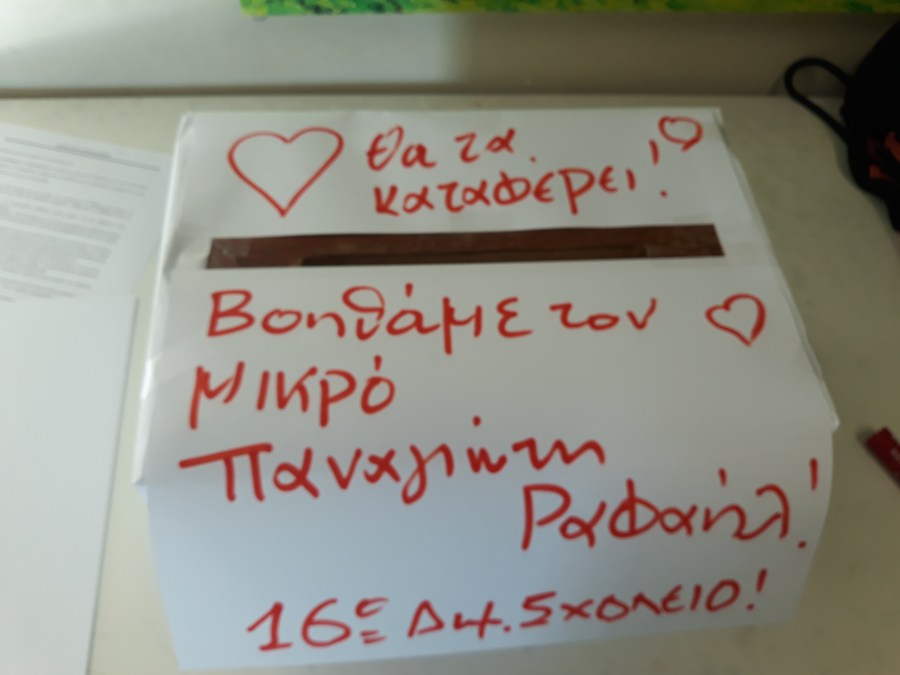 θα τα
καταφέρει!
Βοηθάμε τον
μικρό
Παναγιώτη
Ραφαήλ!
16ο Δημ. Σχολείο!